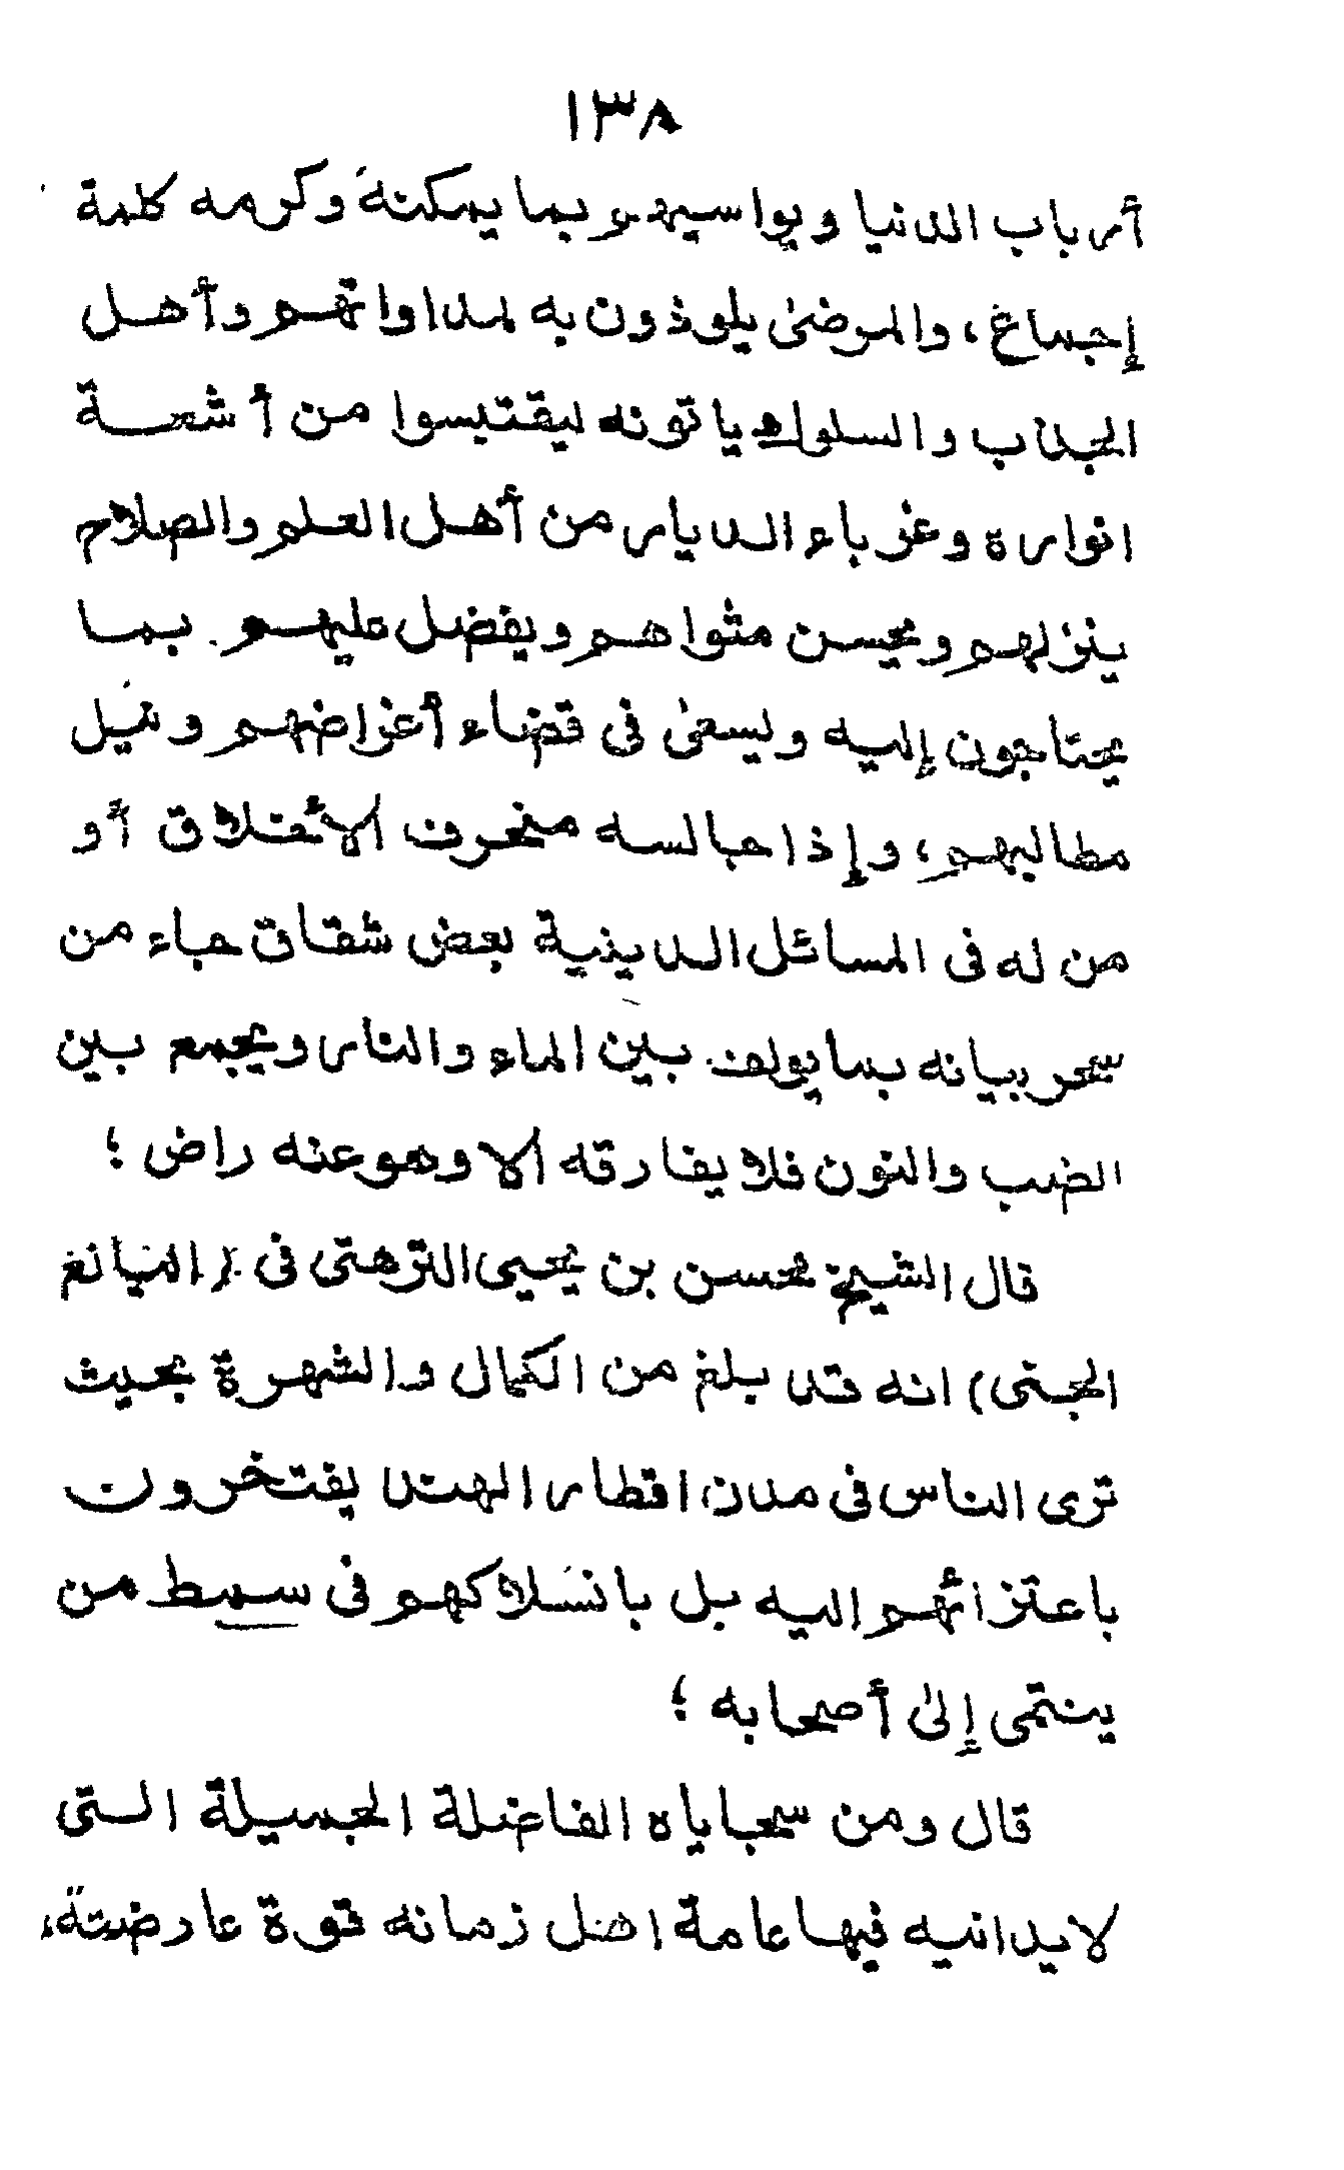 ١٣٨
أرباب الدنيا ويواسيهم بما يمكنه وكرمه كلمة
إجماع، والمرضىٰ يلوذون به لمداواتهم وأهل
الجذب والسلوك ياتونه ليقتبسوا من أشعة
انواره وغرباء الديار من أهل العلم والصلاح
ينزلهم ويحسن مثواهم ويفضل عليهم بما
يحتاجون إليه ويسعىٰ فى قضاء أغراضهم ونيل
مطالبهم، وإذا جالسه منحرف الأخلاق أو
من له فى المسائل الدينية بعض شقاق جاء من
سحر بيانه بما يولف بين الماء والنار ويجمع بين
الضب والنون فلا يفارقه الا وهو عنه راض؛
قال الشيخ محسن بن يحيى الترهتى فى (اليانع
الجنى) انه قد بلغ من الكمال والشهرة بحيث
ترى الناس فى مدن اقطار الهند يفتخرون
باعتزائهم اليه بل بانسلاكهم فى سمط من
ينتمى إلىٰ أصحابه؛
قال ومن سجاياه الفاضلة الجميلة التى
لا يدانيه فيها عامة اهل زمانه قوة عارضته،